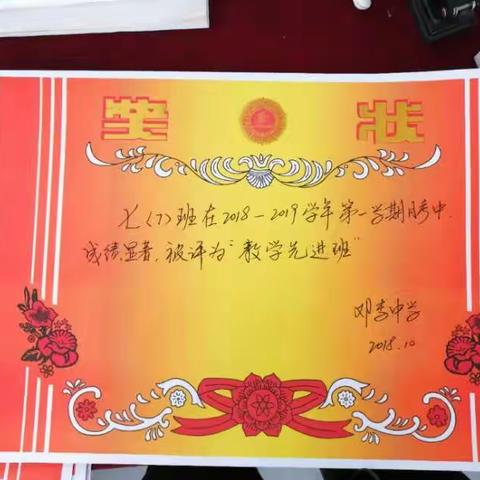 奖状
七〈7〉班在2018-2019学年第一学期月考中,
成绩显著,被评为“数学先进班”
邓李中学
2018.10